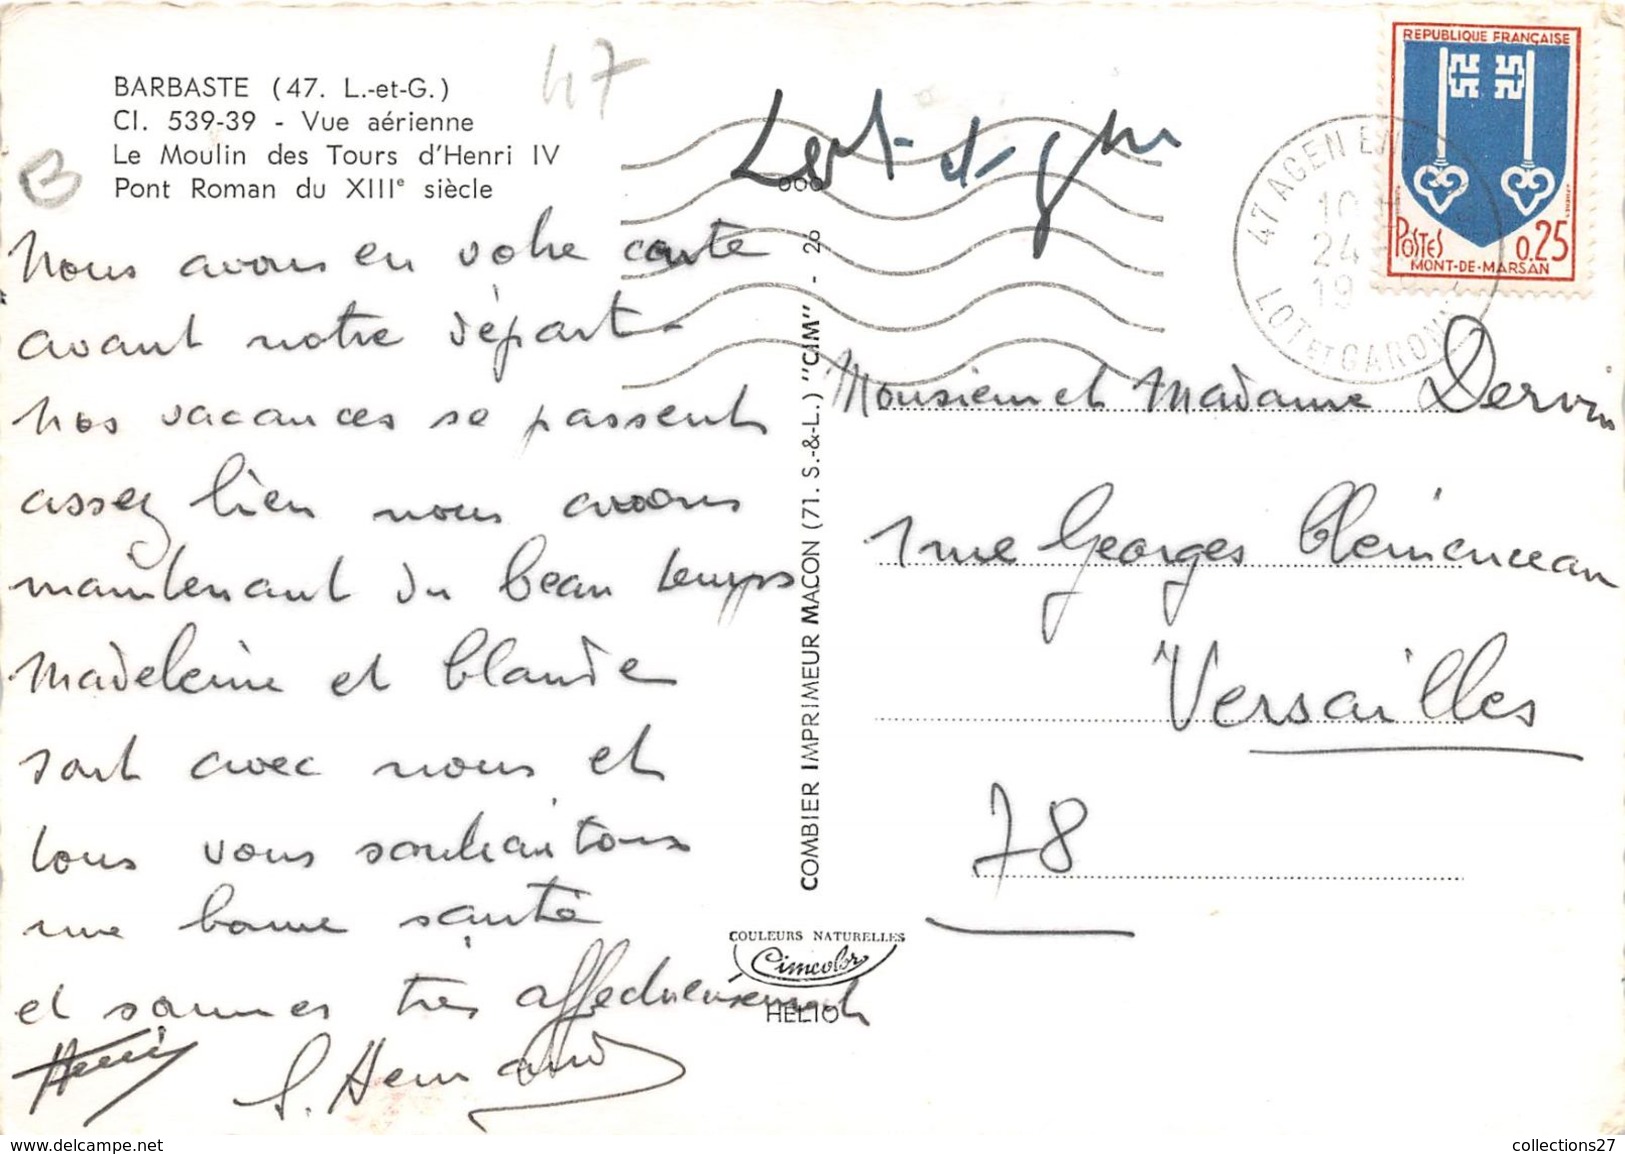 BARBASTE (47. L.-et-G.)
Cl. 539-39 - Vue aérienne
Le Moulin des Tours d'Henri IV
Pont Roman du XIIIe siècle
47
B
Lot-et-Gne
Nous avons eu votre carte
avant notre départ.
Nos vacances se passent
assez bien nous avons
maintenant du beau temps
Madeleine et Claude
sont avec nous et
tous vous souhaitons
une bonne santé
et sommes très affectueusement
COMBIER IMPRIMEUR MACON (71. S.-&-L.) "CIM" - 26
000
COULEURS NATURELLES
Cimcolor
HELIO
REPUBLIQUE FRANÇAISE
POSTES 0.25
MONT-DE-MARSAN
47 AGEN
10 H
24
19
LOT ET GARONNE
Monsieur et Madame Dervin
1 rue Georges Clémenceau
Versailles
78
www.delcampe.net
collections27